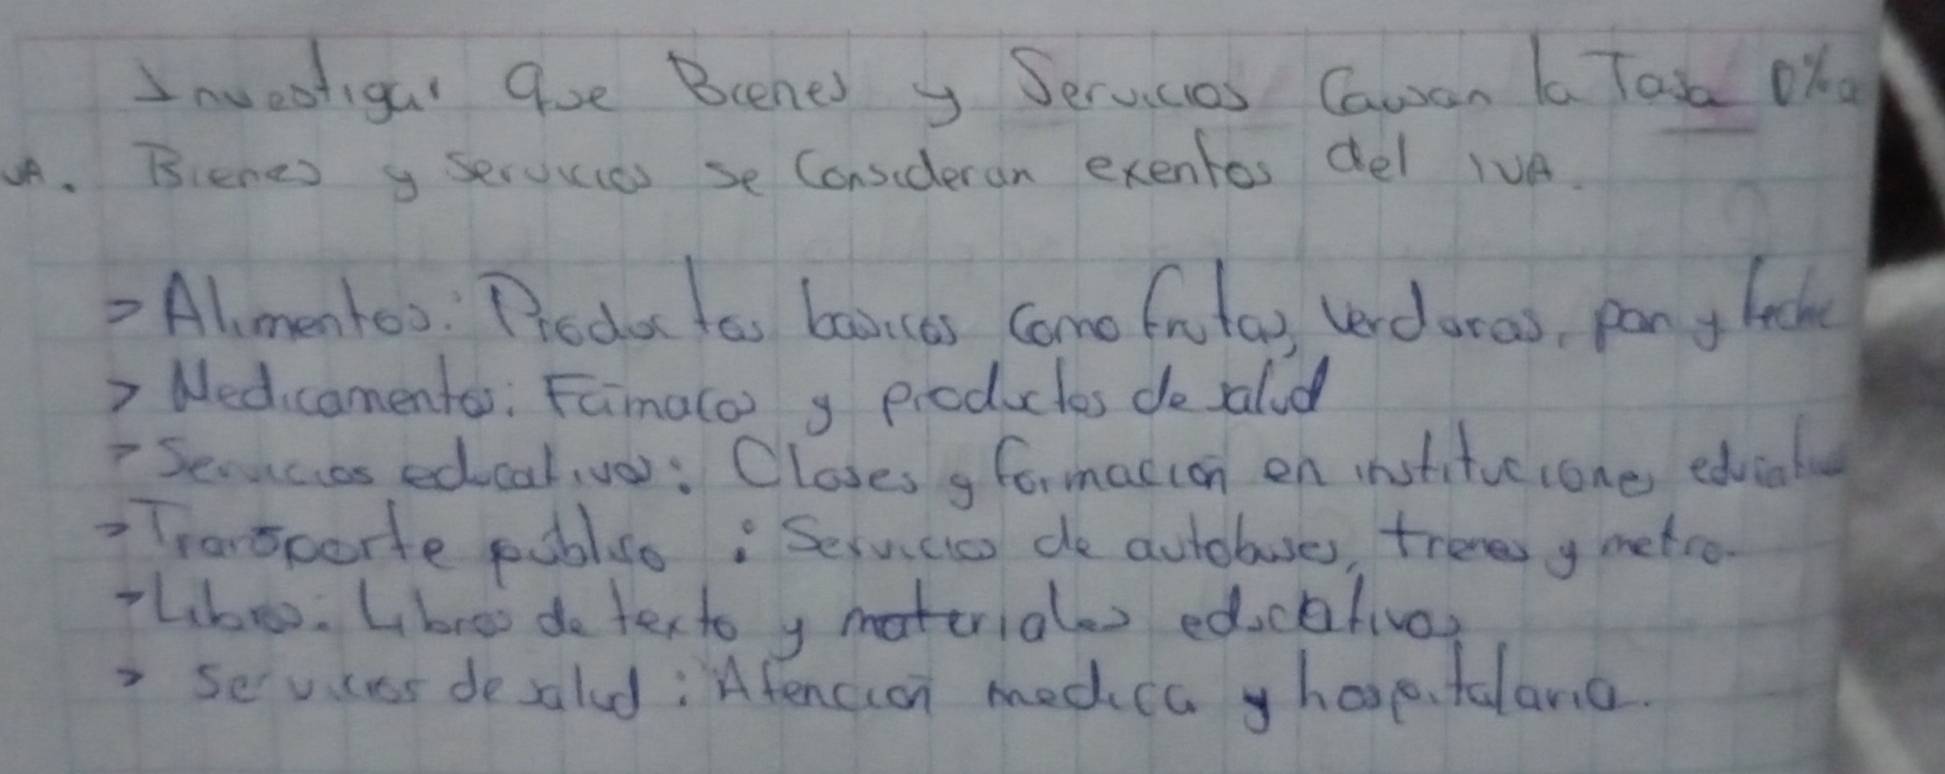 Investigar que Bienes y Servicios Causan la Tasa 0%
Bienes y servicios se Consideran exentos del IVA.
> Alimentos: Productos basicos como frutas, verduras, pan y leche
> Medicamentos: Fármacos y productos de salud
> Servicios educativos: Clases y formación en instituciones educativas
> Transporte público: Servicios de autobuses, trenes y metro.
> Libros: Libros de texto y materiales educativos
> Servicios de salud: Atención medica y hospitalaria.